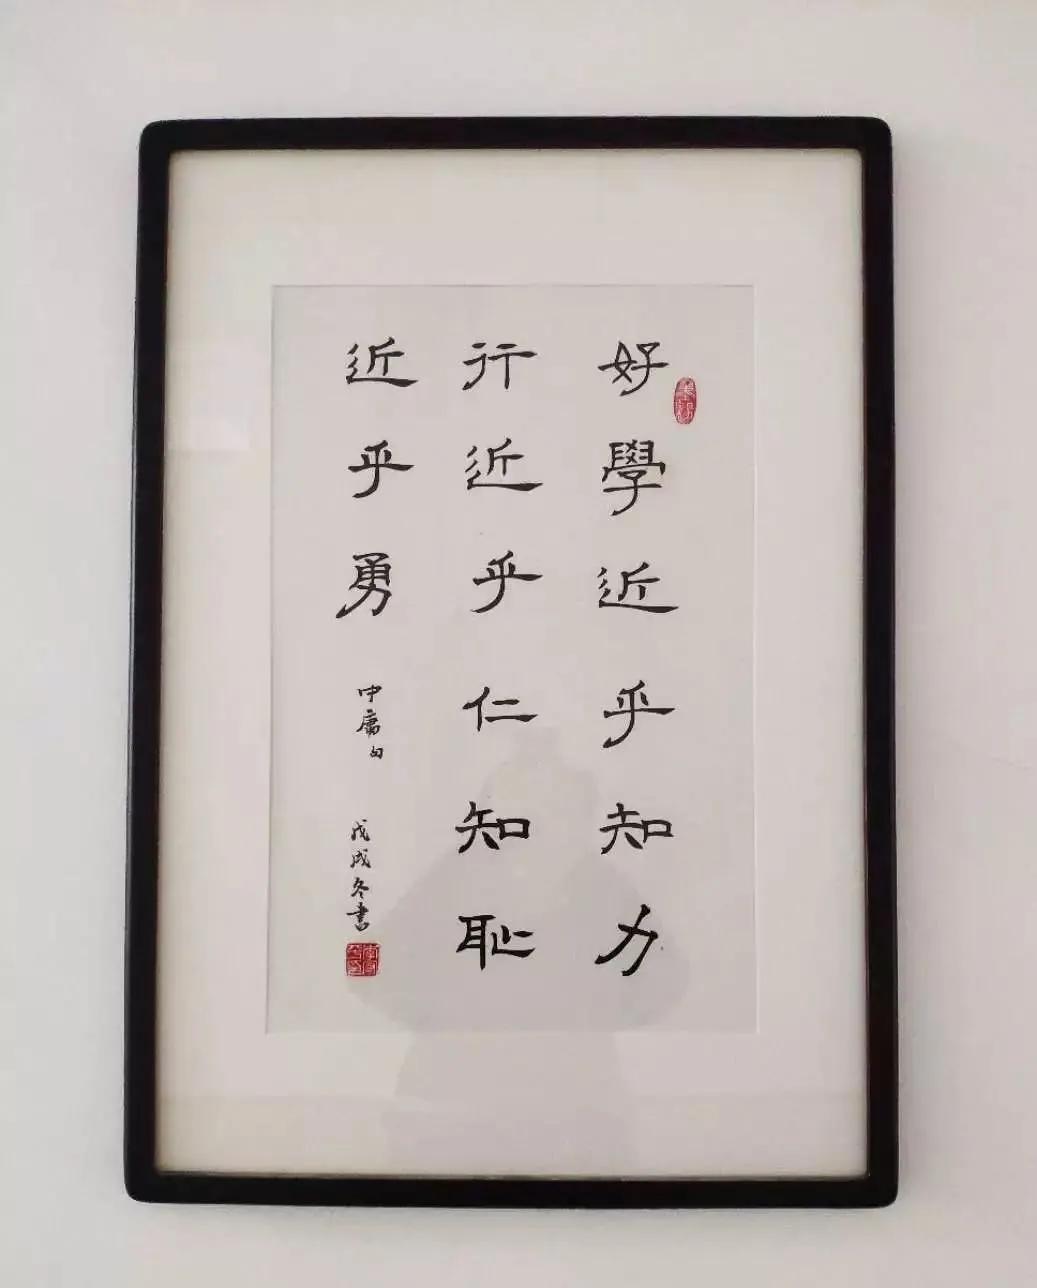 好學近乎知力
行近乎仁知恥
近乎勇
中庸句
戊戌冬書